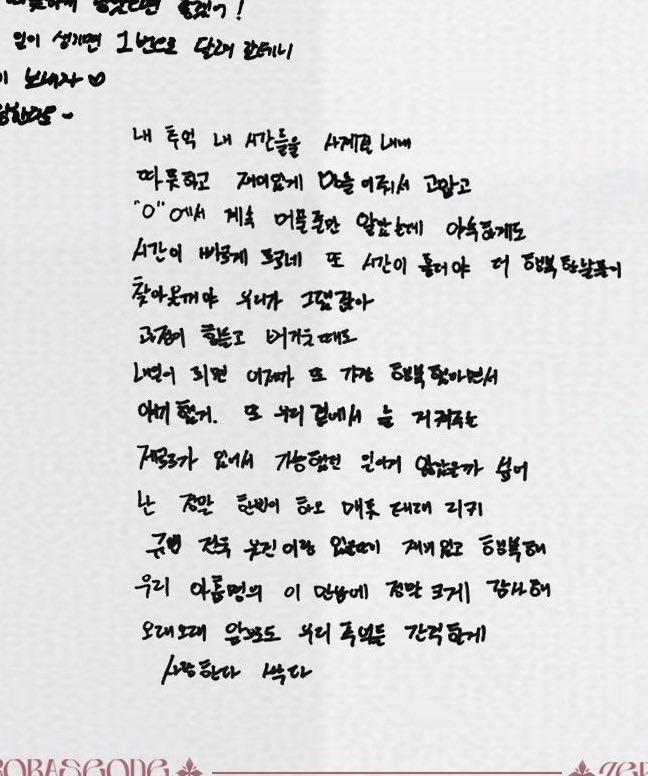 일이 생기면 1번으로 달려 갈테니
보내자 ♡
내 추억 내 시간들을 사계절 내내
따뜻하고 재미있게 만들어줘서 고맙고
"0"에서 계속 머물줄만 알았는데 아쉽게도
시간이 빠르게 흐르네 또 시간이 흘러야 더 행복한날들이
찾아올꺼야 우리가 그랬잖아
과정이 힘들고 버거울때도
내년이 되면 어쩌다 또 가장 행복했다면서
얘기했지. 또 우리 곁에서 늘 지켜주는
제로즈가 있어서 가능했던 일이지 않았을까 싶어
난 정말 한빈이 하오 매튜 태래 리키
규빈 건욱 유진이랑 있는게 재미있고 행복해
우리 아홉명의 이 만남에 정말 크게 감사해
오래오래 앞으로도 우리 추억들 간직할게
사랑한다